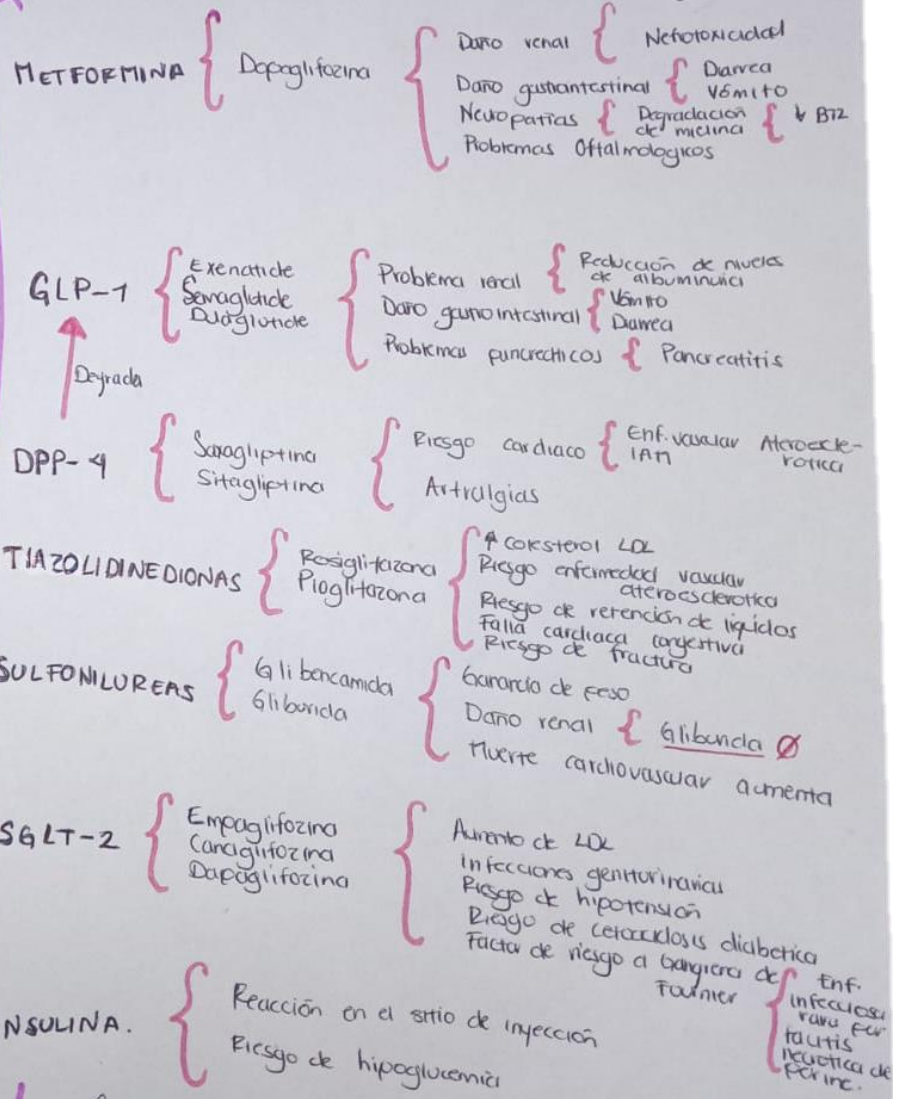 METFORMINA { Dapaglifozina { Daño renal { Nefrotoxicidad
Daño gastrointestinal { Diarrea
Vómito
Neuropatías { Degradación de mielina { ↓ B12
Problemas Oftalmologicos
GLP-1 { Exenatide
Semaglutide
Dulaglutide
Problema renal { Reducción de niveles de albuminuria
Daño gastrointestinal { Vómito
Diarrea
Problemas pancreaticos { Pancreatitis
Degrada
DPP-4 { Saxagliptina
Sitagliptina
Riesgo cardiaco { Enf. vascular Ateroescle-
rotica
IAM
Artralgias
TIAZOLIDINEDIONAS { Rosiglitazona
Pioglitazona
↑ Colesterol LDL
Riesgo enfermedad vascular
ateroesclerotica
Riesgo de retención de liquidos
Falla cardiaca congestiva
Riesgo de fractura
SULFONILUREAS { Glibencamida
Gliburida
Ganancia de peso
Daño renal { Gliburida Ø
Muerte cardiovascular aumenta
SGLT-2 { Empaglifozina
Canaglifozina
Dapaglifozina
Aumento de LDL
Infecciones geniturinarias
Riesgo de hipotensión
Riesgo de cetoacidosis diabetica
Factor de riesgo a Gangrena de
Fournier
Enf.
infecciosa
rara por
necrotica de
perine.
NSULINA. { Reacción en el sitio de inyección
Riesgo de hipoglucemia